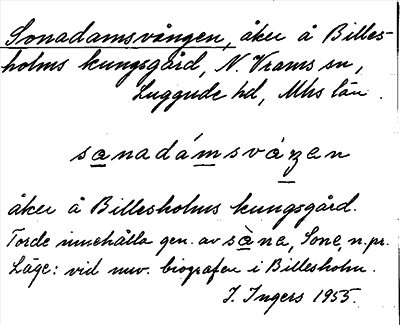 Sonadamsvången, åker å Billes-
holms kungsgård, N. Vrams sn,
Luggude hd, Mhs län.
sanadámsvàŋen
åker å Billesholms kungsgård.
Torde innehålla gen. av sàne, Sone, n. pr.
Läge: vid nuv. biografen i Billesholm.
I. Ingers 1955.